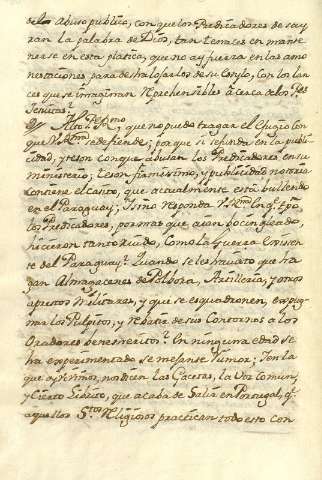 de los Abuso publico, con que los Predicadores descay
ran la palabra de Dios, tan tenaces en mante
nerse en esta platica, que no ay fuerza en las amo
nestaciones para desalojarlos de su Consyo, con los lan
ces que se imaginan Reprehensibles à cerca de los PPes
Jesuitas?
que no puedo tragar el Efugio con
que V. Rma se defiende; porque si se funda en la publi
cidad, y teson con que abusan los Predicadores en su
ministerio; teson firmissimo, y publicidad notoria
Contiene el Casito, que actualmente està bullendo
en el Paraguay; Y sino responda V. Rma En q.e tpo
los Predicadores, por mas que aian bocingleado,
hicieron tanto ruido, Como la Guerra Corrien
te del Paraguay? Quando se les ha visto que ha
gan Almagacenes de Polbora, Artilleria, y otros
aprestos Militares, y que se esquadronen,
los Pulpitos, y de sus Contornos a los
Oradores benemeritos? En ninguna edad se
ha experimentado semejante Rumor; Y en la
que oy vivimos, nos dicen las Gacetas, la Voz Comun,
y Cierto Librito, que acaba de Salir en Portugal, q.e
aquellos S.tos Religiosos practican todo esto con